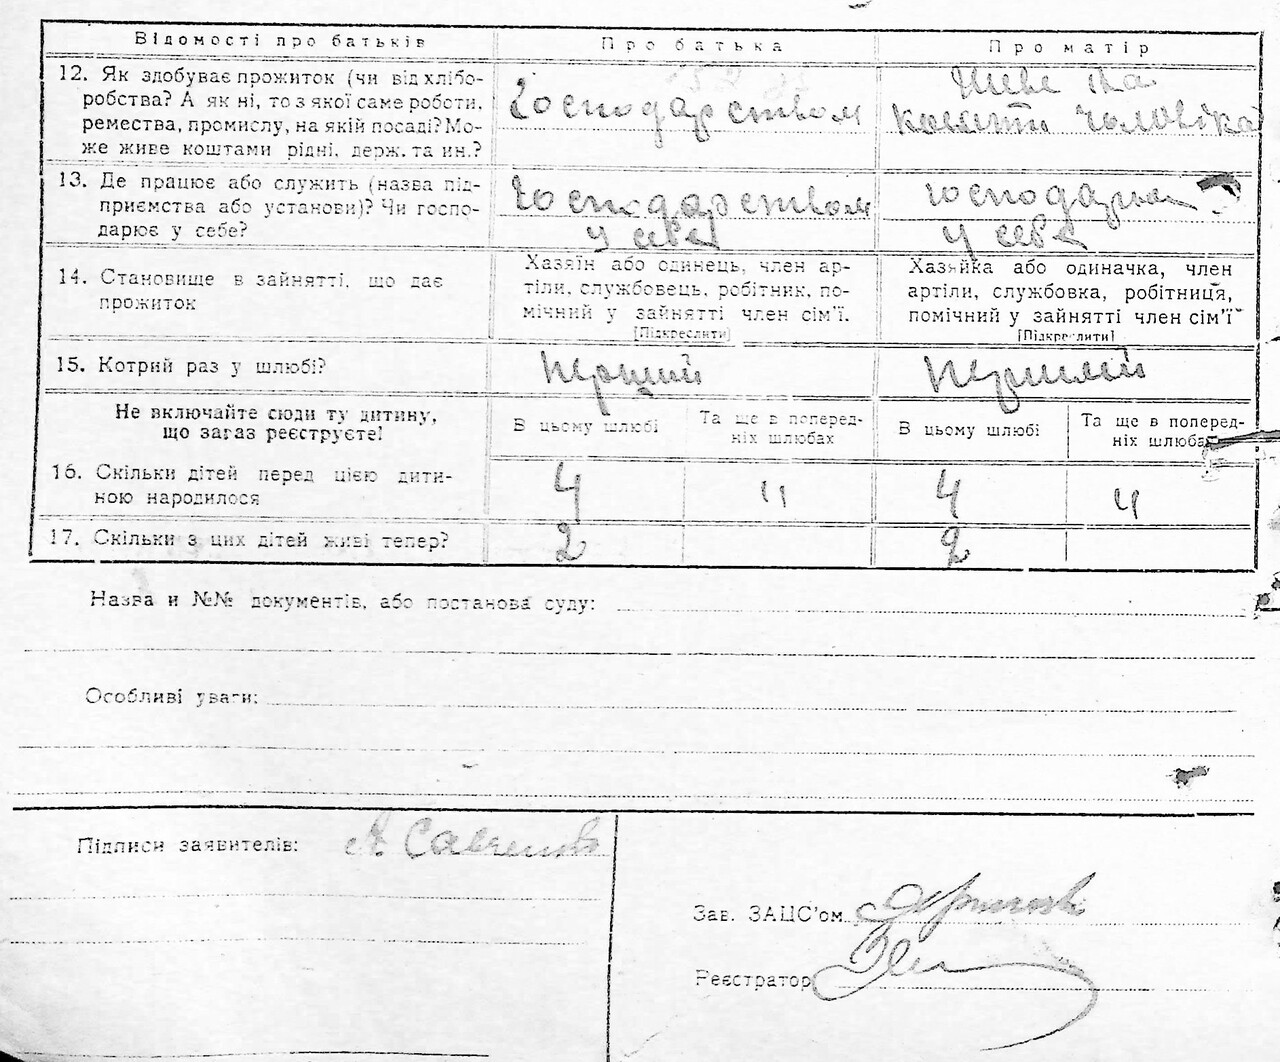 Відомості про батьків
Про батька
Про матір
12. Як здобуває прожиток (чи від хлібо-
робства? А як ні, то з якої саме роботи,
ремества, промислу, на якій посаді? Мо-
же живе коштами рідні, держ. та ин.?
Господарством
Живе на
кошти чоловіка
13. Де працює або служить (назва під-
приємства або установи)? Чи госпо-
дарює у себе?
Господарством
у себе
господарка
у себе
14. Становище в зайнятті, що дає
прожиток
Хазяїн або одинець, член ар-
тіли, службовець, робітник, по-
мічний у зайнятті член сім'ї.
[Підкреслити]
Хазяйка або одиначка, член
артіли, службовка, робітниця,
помічний у зайнятті член сім'ї
[Підкреслити]
15. Котрий раз у шлюбі?
перший
перший
Не включайте сюди ту дитину,
що зараз реєструєте!
В цьому шлюбі
Та ще в поперед-
ніх шлюбах
В цьому шлюбі
Та ще в поперед-
ніх шлюбах
16. Скільки дітей перед цією дити-
ною народилося
4
"
4
"
17. Скільки з цих дітей живі тепер?
2
2
Назва и №№ документів, або постанова суду:
Особливі уваги:
Підписи заявителів:
А Савченко
Зав. ЗАЦС'ом
Реєстратор